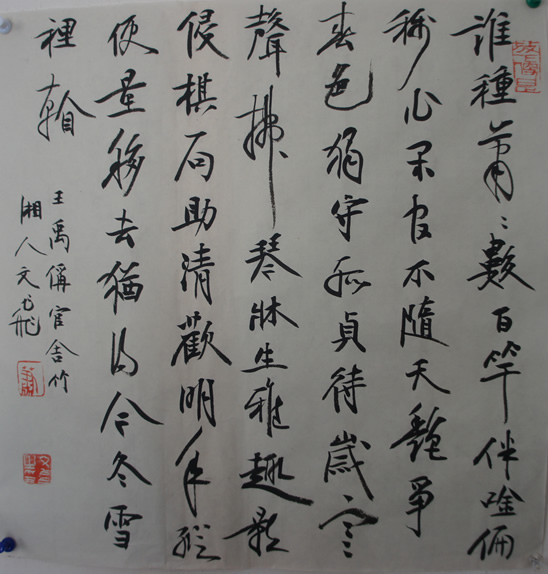 誰種蕭〻數百竿伴唫偏
称心閑官不隨夭豔爭
春色獨守孤貞待歲寒
聲拂琴牀生雅趣影
侵棋局助清歡明年縱
便量移去猶得今冬雪
裡看
王禹偁官舍竹
湘人文飛